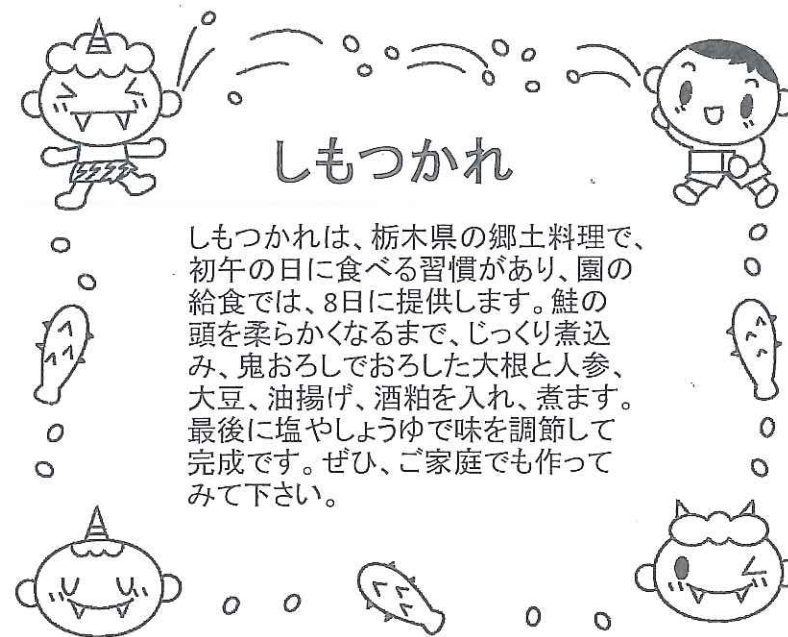 しもつかれ
しもつかれは、栃木県の郷土料理で、
初午の日に食べる習慣があり、園の
給食では、8日に提供します。鮭の
頭を柔らかくなるまで、じっくり煮込
み、鬼おろしでおろした大根と人参、
大豆、油揚げ、酒粕を入れ、煮ます。
最後に塩やしょうゆで味を調節して
完成です。ぜひ、ご家庭でも作って
みて下さい。